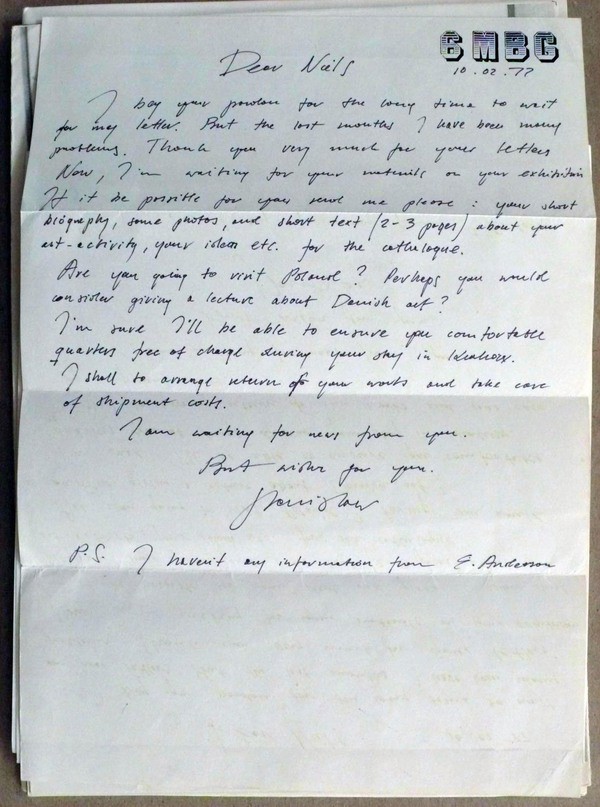 6 MBG
10.02.77
Dear Niels
I beg your pardon for the long time to wait
for my letter. But the last months I have been many
problems. Thank you very much for your letters
Now, I'm waiting for your materials on your exhibition
If it be possible for you send me please: your short
biography, some photos, and short text (2-3 pages) about your
art-activity, your ideas etc. for the cathalogue.
Are you going to visit Poland? Perhaps you would
consider giving a lecture about Danish art?
I'm sure I'll be able to ensure you comfortable
quarters free of charge during your stay in Krakow.
I shall to arrange return of your works and take care
of shipment costs.
I am waiting for news from you.
Best wishes for you.
Stanislaw
P.S. I haven't any information from E. Anderson